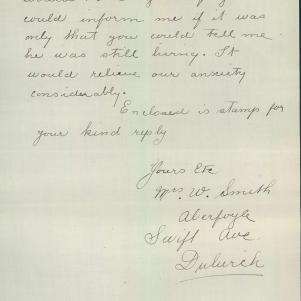 could inform me if it was
only that you could tell me
he was still living. It
would relieve our anxiety
considerably.
Enclosed is stamp for
your kind reply
Yours Etc
Mrs W. Smith
Aberfoyle
Swift Ave
Dulwich